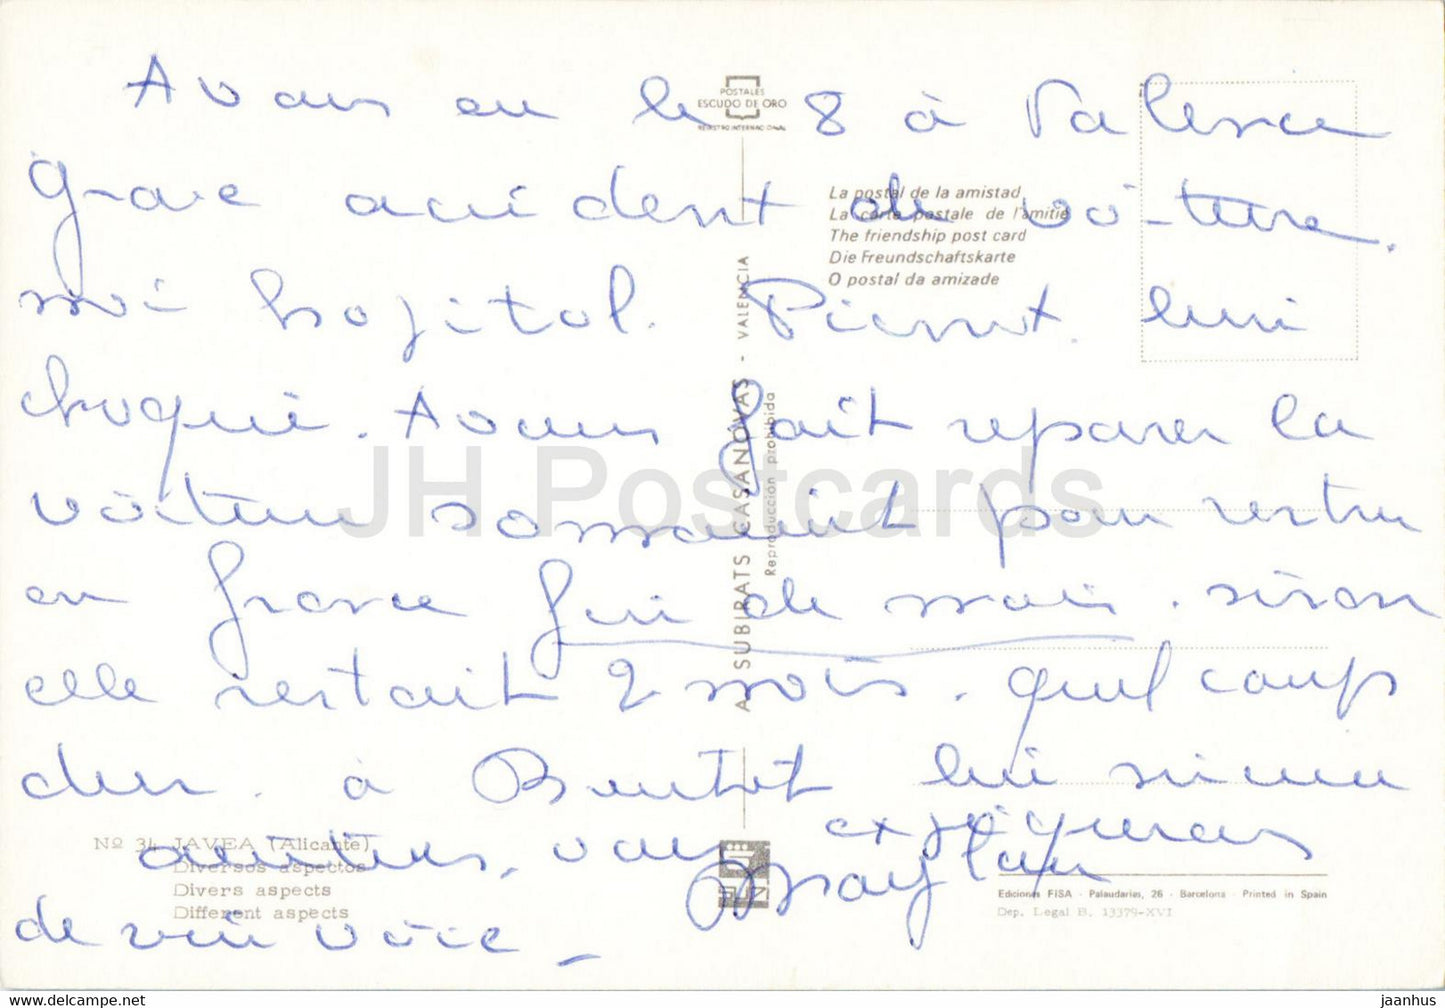 Avons eu le 8 à Valence
grave accident de voiture.
moi hopital. Pierrot. lui
choqué. Avons fait reparer la
voiture sommairint pour rentrer
en france fin de mois. sinon
elle restait 2 mois. quel coup
dur. à Bientot lui sincer
amitiés. vous expliquerons
de vive voix -
POSTALES
ESCUDO DE ORO
REGISTRO INTERNACIONAL
La postal de la amistad
La carte postale de l'amitié
The friendship post card
Die Freundschaftskarte
O postal da amizade
A. SUBIRATS CASANOVAS - VALENCIA
Reproducción prohibida
JH Postcards
Nº 34 JAVEA (Alicante)
Diversos aspectos
Divers aspects
Different aspects
Ediciones FISA - Palaudarias, 26 - Barcelona - Printed in Spain
Dep. Legal B. 13379-XVI
HipPostcard.com
jaanhus